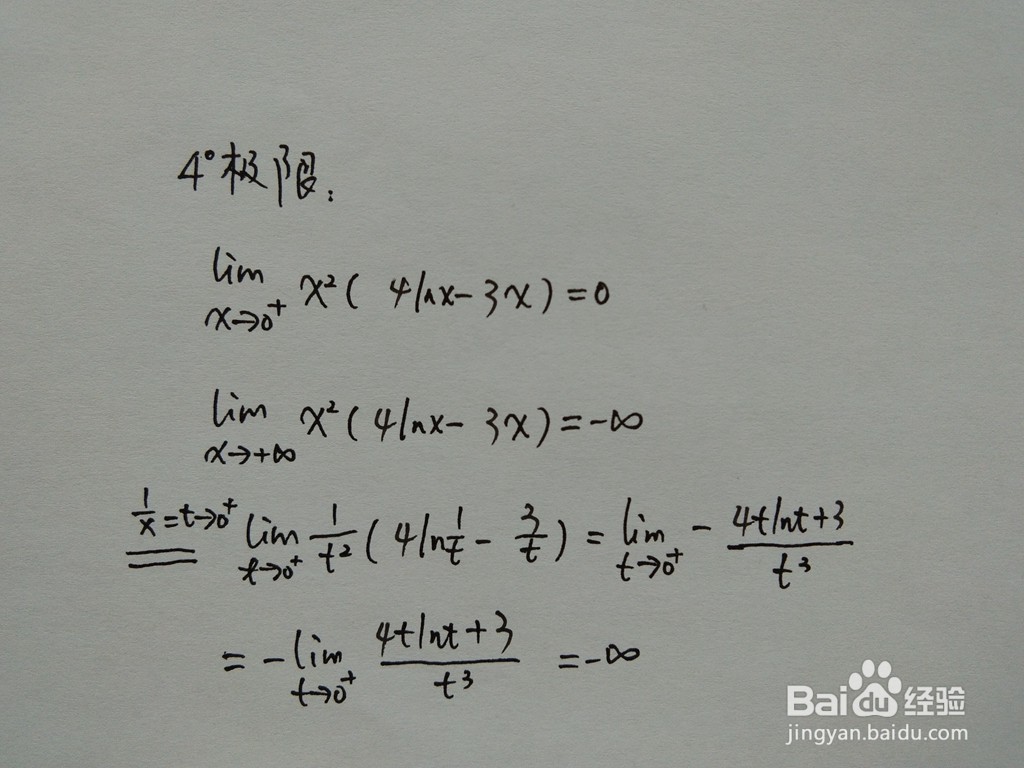 4°极限:
lim x→0⁺ x²( 4lnx-3x)=0
lim x→+∞ x²(4lnx- 3x)=-∞
1/x=t→0⁺ lim t→0⁺ 1/t² (4ln1/t - 3/t) = lim t→0⁺ - (4tlnt+3)/t³
= -lim t→0⁺ (4tlnt+3)/t³ =-∞
Baidu经验
jingyan.baidu.com